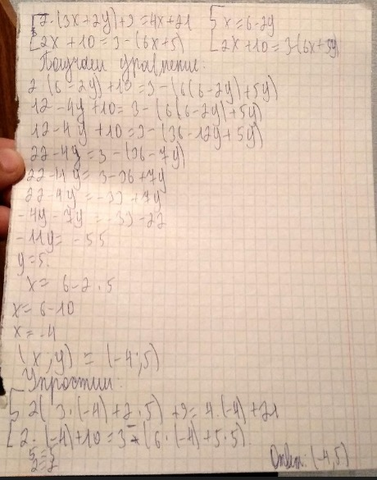 {2·(3x+2y)+9=4x+21 {x=6-2y
{2x+10=3-(6x+5) {2x+10=3-(6x+5y)
Получаем уравнение:
2·(6-2y)+10=3-(6(6-2y)+5y)
12-4y+10=3-(6(6-2y)+5y)
12-4y+10=3-(36-12y+5y)
22-4y=3-(36-7y)
22-4y=3-36+7y
22-4y=-33+7y
-4y-7y=-33-22
-11y=-55
y=5.
x=6-2·5
x=6-10
x=-4
(x;y)=(-4;5)
Упростим:
{2(3·(-4)+2·5)+9=4·(-4)+21
{2·(-4)+10=3-(6·(-4)+5·5)
5=5
2=2
Ответ: (-4;5)